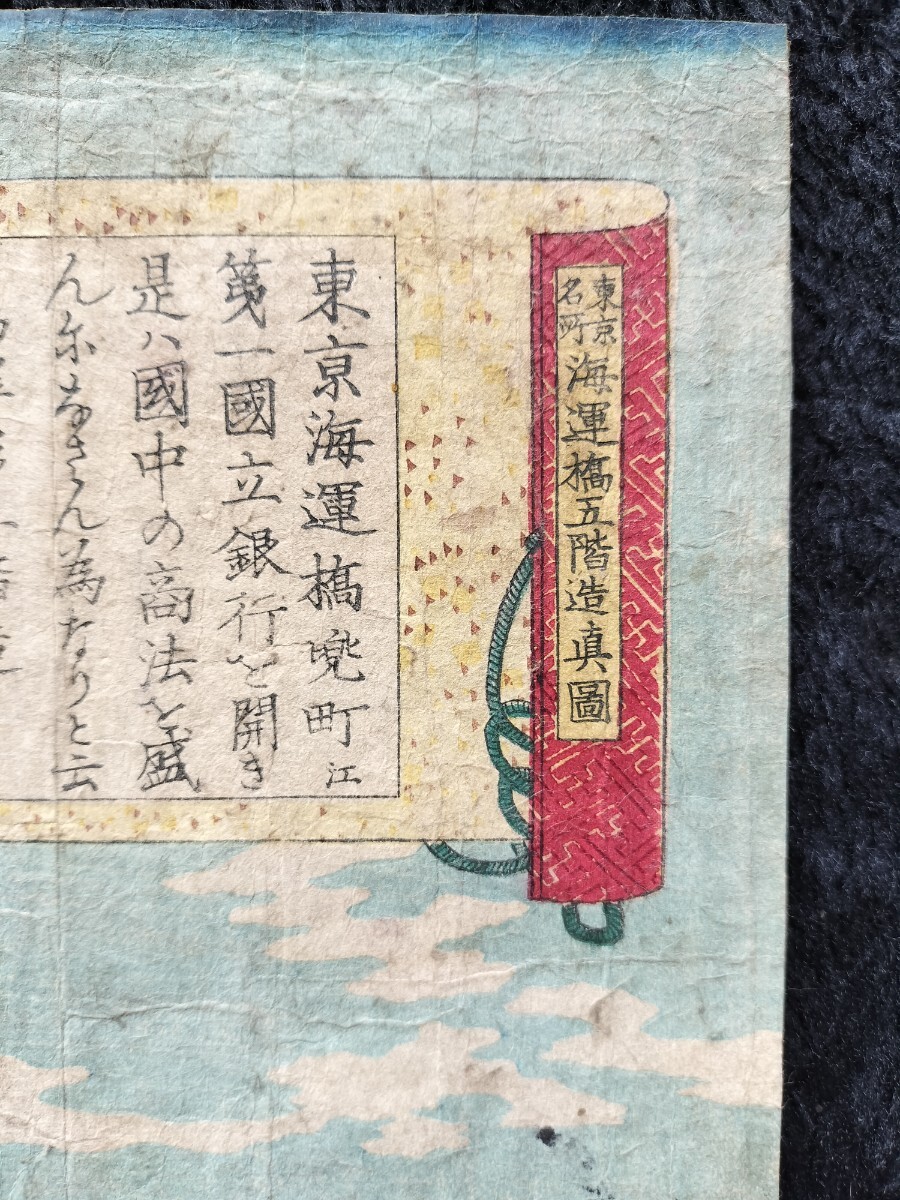 東京
名所
海運橋五階造真圖
東京海運橋兜町江
第一國立銀行を開き
是ハ國中の商法を盛
んになさん為なりと云